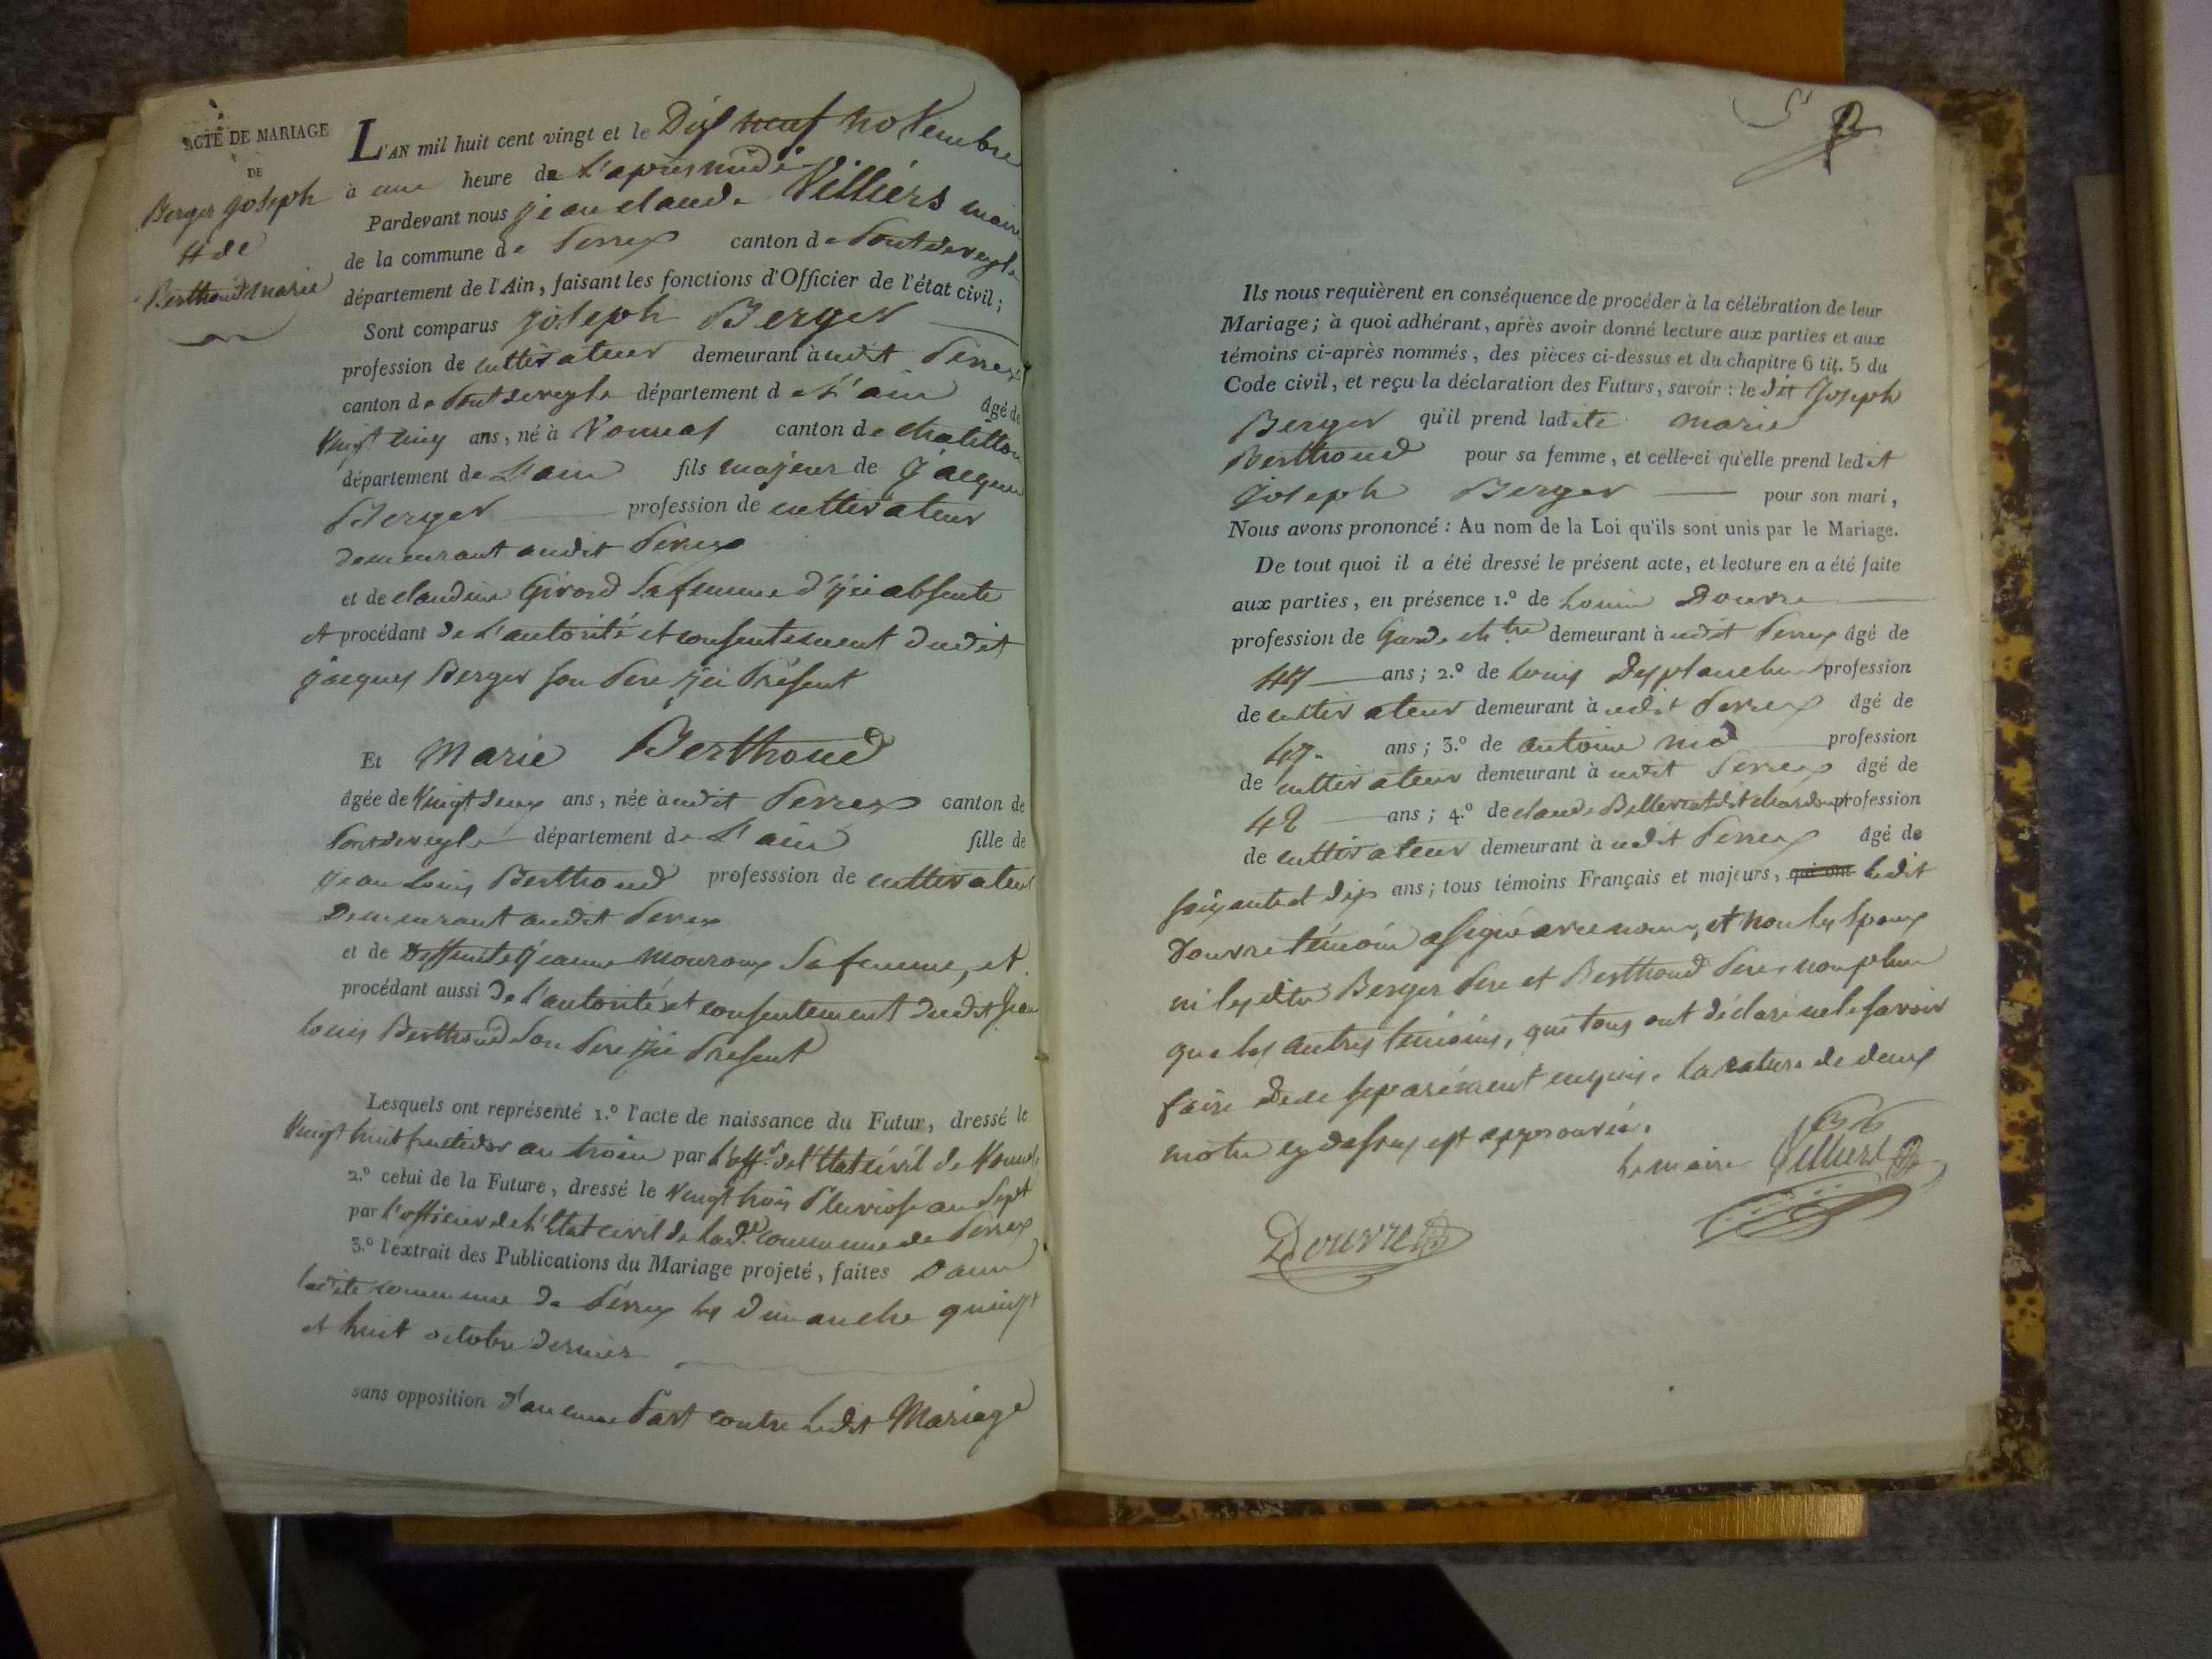 ACTE DE MARIAGE
DE
Berger joseph
et de
Berthoud marie
L'AN mil huit cent vingt et le Dix neuf novembre
à une heure de L'après midi
Pardevant nous jean claude Villiers maire
de la commune de Perrex canton de Pontdeveyle
département de l'Ain, faisant les fonctions d'Officier de l'état civil;
Sont comparus joseph Berger
profession de cultivateur demeurant à udit Perrex
canton de Pontdeveyle département de L'ain âgé de
Vingt cinq ans, né à Vonnas canton de chatillon
département de L'ain fils majeur de jacques
Berger profession de cultivateur
demeurant audit Perrex
et de claudine Girard sa femme d'ici absente
et procédant de L'autorité et consentement dudit
jacques Berger son Pere ici Présent
Et Marie Berthoud
âgée de Vingt deux ans, née à udit Perrex canton de
Pontdeveyle département de L'ain fille de
jean Louis Berthoud professsion de cultivateur
Demeurant audit Perrex
et de Deffunte jeanne Mouroux sa femme, et
procédant aussi De l'autorité et consentement dudit jean
louis Berthoud son Pere ici Present
Lesquels ont représenté 1.º l'acte de naissance du Futur, dressé le
Vingt huit fructidor an trois par l'off.r de l'Etat civil de Vonnas
2.º celui de la Future, dressé le Vingt trois Pluviose an Sept
par l'officier de l'Etat civil de lad.e commune de Perrex
3.º l'extrait des Publications du Mariage projeté, faites Dans
ladite commune de Perrex les dimanche
et huit octobre dernier
sans opposition d'aucune Part contre ledit Mariage
Ils nous requièrent en conséquence de procéder à la célébration de leur
Mariage; à quoi adhérant, après avoir donné lecture aux parties et aux
témoins ci-après nommés, des pièces ci-dessus et du chapitre 6 tit. 5 du
Code civil, et reçu la déclaration des Futurs, savoir: le dit Joseph
Berger qu'il prend ladite marie
Berthoud pour sa femme, et celle-ci qu'elle prend ledit
joseph Berger pour son mari,
Nous avons prononcé: Au nom de la Loi qu'ils sont unis par le Mariage.
De tout quoi il a été dressé le présent acte, et lecture en a été faite
aux parties, en présence 1.º de Louis Douvre
profession de Garde ch.tre demeurant à udit Perrex âgé de
44 ans; 2.º de louis Desplanches profession
de cultivateur demeurant à udit Perrex âgé de
47 ans; 3.º de antoine profession
de cultivateur demeurant à udit Perrex âgé de
42 ans; 4.º de claude dit profession
de cultivateur demeurant à udit Perrex âgé de
soixante et dix ans; tous témoins Français et majeurs, qui ont ledit
Douvre témoin a signé avec nous, et non les Epoux
ni lesdits Berger Pere et Berthoud Pere, non plus
que les autres témoins, que tous ont déclaré ne le savoir
faire De ce séparément enquis. La rature de deux
mots cy dessus est approuvée.
Le maire Villiers
Douvre